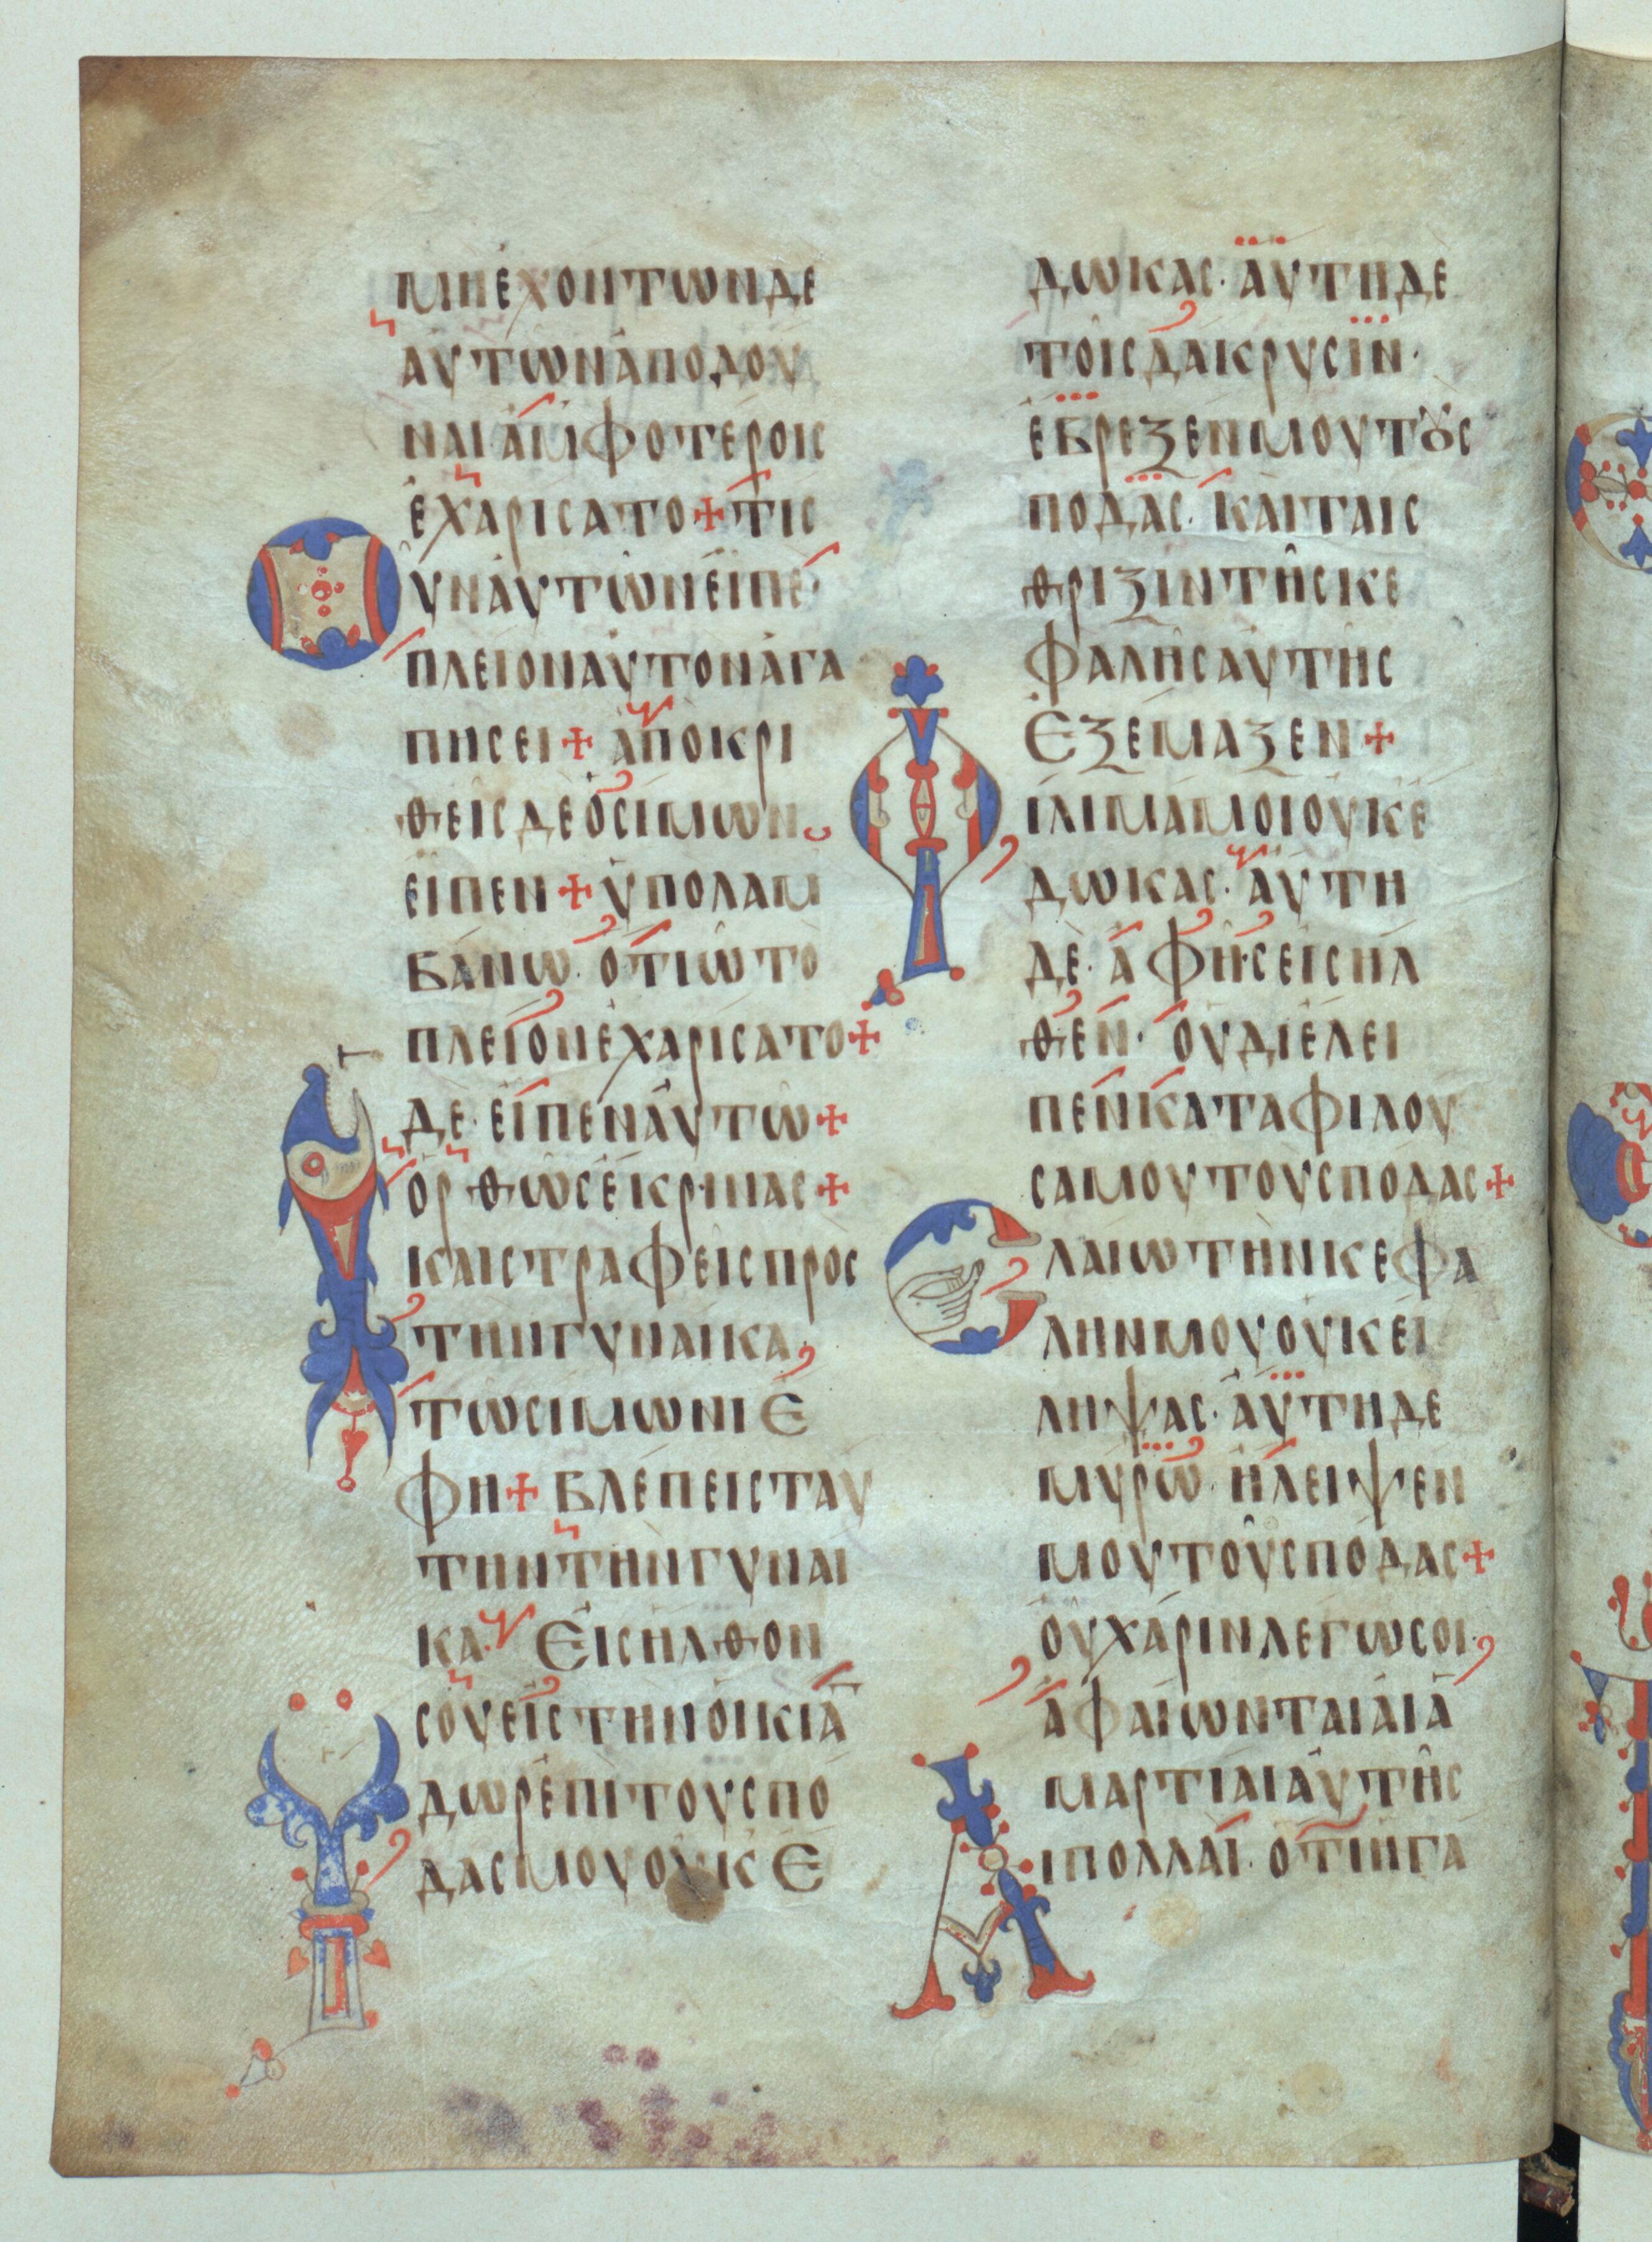 ΜΗΕΧΟΝΤΩΝΔΕ
ΑΥΤΩΝΑΠΟΔΟΥ
ΝΑΙΑΜΦΟΤΕΡΟΙΣ
ΕΧΑΡΙΣΑΤΟ+ΤΙΣ
ΟΥΝΑΥΤΩΝΕΙΠΕ·
ΠΛΕΙΟΝΑΥΤΟΝΑΓΑ
ΠΗΣΕΙ+ΑΠΟΚΡΙ
ΘΕΙΣΔΕΟΣΙΜΩΝ
ΕΙΠΕΝ+ΥΠΟΛΑΜ
ΒΑΝΩ·ΟΤΙΩΤΟ
ΠΛΕΙΟΝΕΧΑΡΙΣΑΤΟ+
ΙΔΕ·ΕΙΠΕΝΑΥΤΩ+
ΟΡΘΩΣΕΚΡΙΝΑΣ+
ΚΑΙΣΤΡΑΦΕΙΣΠΡΟΣ
ΤΗΝΓΥΝΑΙΚΑ
ΤΩΣΙΜΩΝΙΕ
ΦΗ+ΒΛΕΠΕΙΣΤΑΥ
ΤΗΝΤΗΝΓΥΝΑΙ
ΚΑ·ΕΙΣΗΛΘΟΝ
ΣΟΥΕΙΣΤΗΝΟΙΚΙΑ̅
ΥΔΩΡΕΠΙΤΟΥΣΠΟ
ΔΑΣΜΟΥΟΥΚΕ
ΔΩΚΑΣ·ΑΥΤΗΔΕ
ΤΟΙΣΔΑΚΡΥΣΙΝ·
ΕΒΡΕΞΕΝΜΟΥΤȢΣ
ΠΟΔΑΣ·ΚΑΙΤΑΙΣ
ΘΡΙΞΙΝΤΗΣΚΕ
ΦΑΛΗΣΑΥΤΗΣ
ΕΞΕΜΑΞΕΝ+
ΦΙΛΙΜΑΜΟΙΟΥΚΕ
ΔΩΚΑΣ·ΑΥΤΗ
ΔΕ·ΑΦΗΣΕΙΣΗΛ
ΘΕΝ·ΟΥΔΙΕΛΕΙ
ΠΕΝΚΑΤΑΦΙΛΟΥ
ΣΑΜΟΥΤΟΥΣΠΟΔΑΣ+
ΕΛΑΙΩΤΗΝΚΕΦΑ
ΛΗΝΜΟΥΟΥΚΕΙ
ΛΗΨΑΣ·ΑΥΤΗΔΕ
ΜΥΡΩ·ΗΛΕΙΨΕΝ
ΜΟΥΤΟΥΣΠΟΔΑΣ+
ΟΥΧΑΡΙΝΛΕΓΩΣΟΙ·
ΑΦΑΙΩΝΤΑΙΑΙΑ
ΜΑΡΤΙΑΙΑΥΤΗΣ
ΑΙΠΟΛΛΑΙ·ΟΤΙΗΓΑ